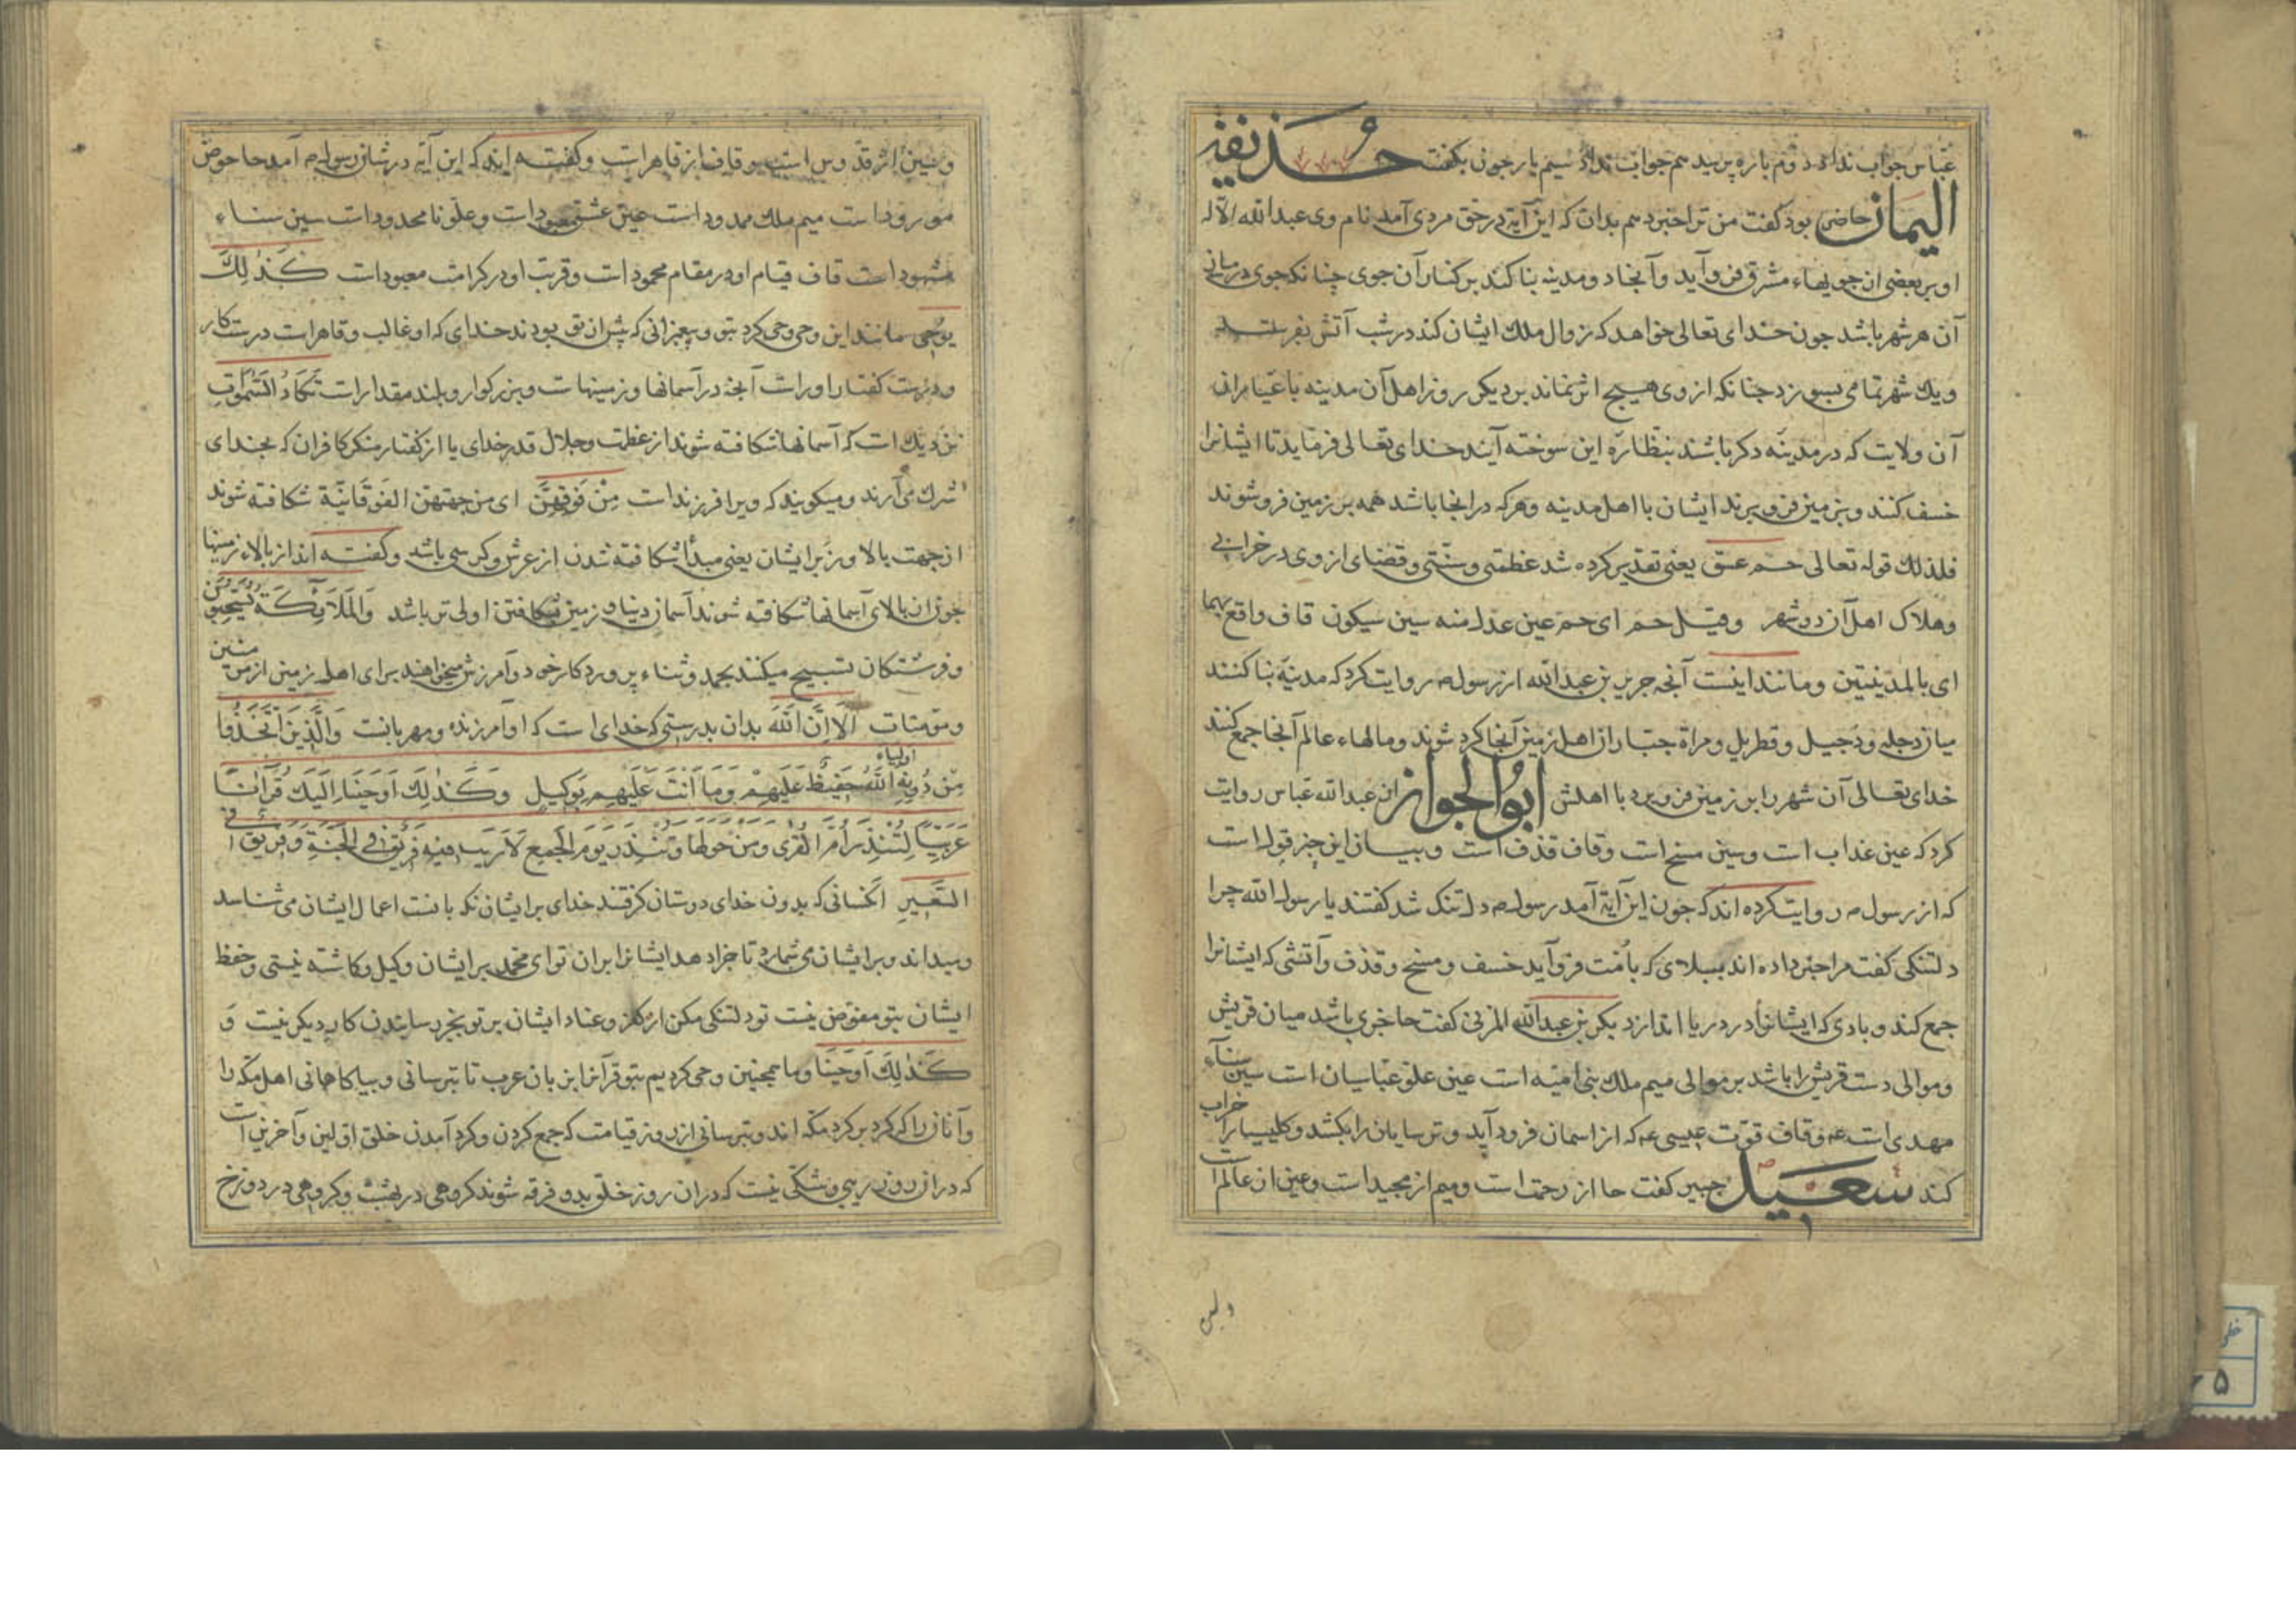 عباس جواب نداد دوم باره پرسید هم جواب نداد سیم بار جون بگفت حذیفة
الیمان حاضر بود گفت من ترا خبر دهم بدان که این آیة در حق مردی آمد نام وی عبدالله الاله
او بر بعضی از جویهاء مشرق فرو آید و آنجا دو مدینه بنا کند بر کنار آن جوی چنانکه جوی در میانی
آن هر شهر باشد جون خدای تعالی خواهد که زوال ملک ایشان کند در شب آتش بفرستد
و یک شهر تمامی بسوزد چنانکه از وی هیچ اثر نماند پس دیکر روز اهل آن مدینه با عیاران
آن ولایت که در مدینه دکر باشند بنظاره این سوخته آیند خدای تعالی فرماید تا ایشانرا
خسف کنند و بزمین فرو برند ایشان با اهل مدینه وهرکه در انجا باشد همه بر زمین فرو شوند
فلذلک قوله تعالی حم عسق یعنی تقدیر کرده شد عظمتی و سنتی و قضای از وی در خرابی
وهلاک اهل آن دو شهر وقیل حم ای حم عین عدل منه سین سیکون قاف واقع بهما
ای بالمدینتین ومانند اینست آنچه جریر بن عبدالله از رسول ص روایت کرد که مدینة بنا کنند
میان دجله و دجیل و قطربل و صراة جباران اهل زمین آنجا کرد شوند ومالهاء عالم آنجا جمع کنند
خدای تعالی آن شهر را بزمین فرو برد با اهلش ابوالجواز از عبدالله عباس روایت
کرد که عین عذاب است وسین مسخ است وقاف قذف است وبیان این خبر قوله است
که از رسول ص روایت کرده اند که جون این آیة آمد رسول ص دلتنک شد گفتند یا رسول الله چرا
دلتنکی گفت مرا خبر داده اند ببلای که بامت فرو آید خسف و مسخ و قذف و آتشی که ایشانرا
جمع کند و بادی که ایشانرا در دریا اندازد بکر بن عبدالله المزنی گفت حا خبری باشد میان قریش
وموالی دست قریش را باشد بر موالی میم ملک بنی امیه است عین علو عباسیان است سین سناء
مهدی است عم وقاف قوت عیسی عم که از اسمان فرود آید و ترسایان را بکشد و کلیسیارا خراب
کند سعید جبیر گفت حا از رحمت است ومیم از مجید است وعین از عالم است
ولین
وسین از قدوس است و قاف از قاهر است و گفته اند که این آیه در شان رسول ص آمد حا حوض
مورود است میم ملک ممدود است عین عشق معبود است وعلو نا محدود است سین سناء
مشهود است قاف قیام او در مقام محمود است و قربت او در کرامت معبود است کَذَلِکَ
یوحی مانند این وحی وحی کرد بتو و پیغمبرانی که پیش از تو بودند خدای که او غالب و قاهر است درست کار
ودرست کفتار او راست آنچه در آسمانها و زمینهاست و بزرکوار و بلند مقدار است تَکَادُ السَّمٰوَاتُ
نزدیک است که آسمانها شکافته شوند از عظمت و جلال قدر خدای یا از کفتار منکر کافران که بخدای
شرک می آرند و میکویند که ویرا فرزند است مِنْ فَوْقِهِنَّ ای من جهتهن الفوقانیة شکافته شوند
از جهت بالا و زبر ایشان یعنی مبدأ شکافته شدن از عرش و کرسی باشد و کفته اند از بالاء زمینها
جون از بالای آسمانها شکافته شوند آسمان دنیا و زمین شکافتن اولی تر باشد وَالْمَلَائِکَةُ یُسَبِّحُونَ
و فرشتکان تسبیح میکنند بحمد و ثناء پروردکار خود و آمرزش میخواهند برای اهل زمین از مؤمنین
ومؤمنات اَلَا اِنَّ اللّٰهَ بدان بدرستی که خدای است که او آمرزنده و مهربانست وَالَّذِینَ اتَّخَذُوا
مِنْ دُونِهِ اولیاء اللّٰهُ حَفِیظٌ عَلَیْهِمْ وَمَا اَنْتَ عَلَیْهِمْ بِوَکِیلٍ وَکَذٰلِکَ اَوْحَیْنَا اِلَیْکَ قُرْآنًا
عَرَبِیًّا لِتُنْذِرَ اُمَّ الْقُرٰی وَمَنْ حَوْلَهَا وَتُنْذِرَ یَوْمَ الْجَمْعِ لَا رَیْبَ فِیهِ فَرِیقٌ فِی الْجَنَّةِ وَفَرِیقٌ فی
السَّعِیرِ آنکسانی که بدون خدای دوستان کرفتند خدای بر ایشان نکهبانست اعمال ایشان می شناسد
ومیداند و بر ایشان می شمارد تا جزا دهد ایشانرا بران تو ای محمد بر ایشان وکیل و کماشته نیستی و حفظ
ایشان بتو مفوض نیست تو دلتنکی مکن از کفر و عناد ایشان بر تو بجز رسانیدن کار دیکر نیست وَ
کَذٰلِکَ اَوْحَیْنَا و ما همچنین وحی کردیم بتو قرآنرا بزبان عرب تا بترسانی و بیاکاهانی اهل مکه را
و آنان را که کرد بر کرد مکه اند و بترسانی از روز قیامت که جمع کردن و کرد آمدن خلق اولین و آخرین است
که در آن روز ریبی و شکی نیست که دران روز خلق بدو فرقه شوند کروهی در بهشت و کروهی در دوزخ